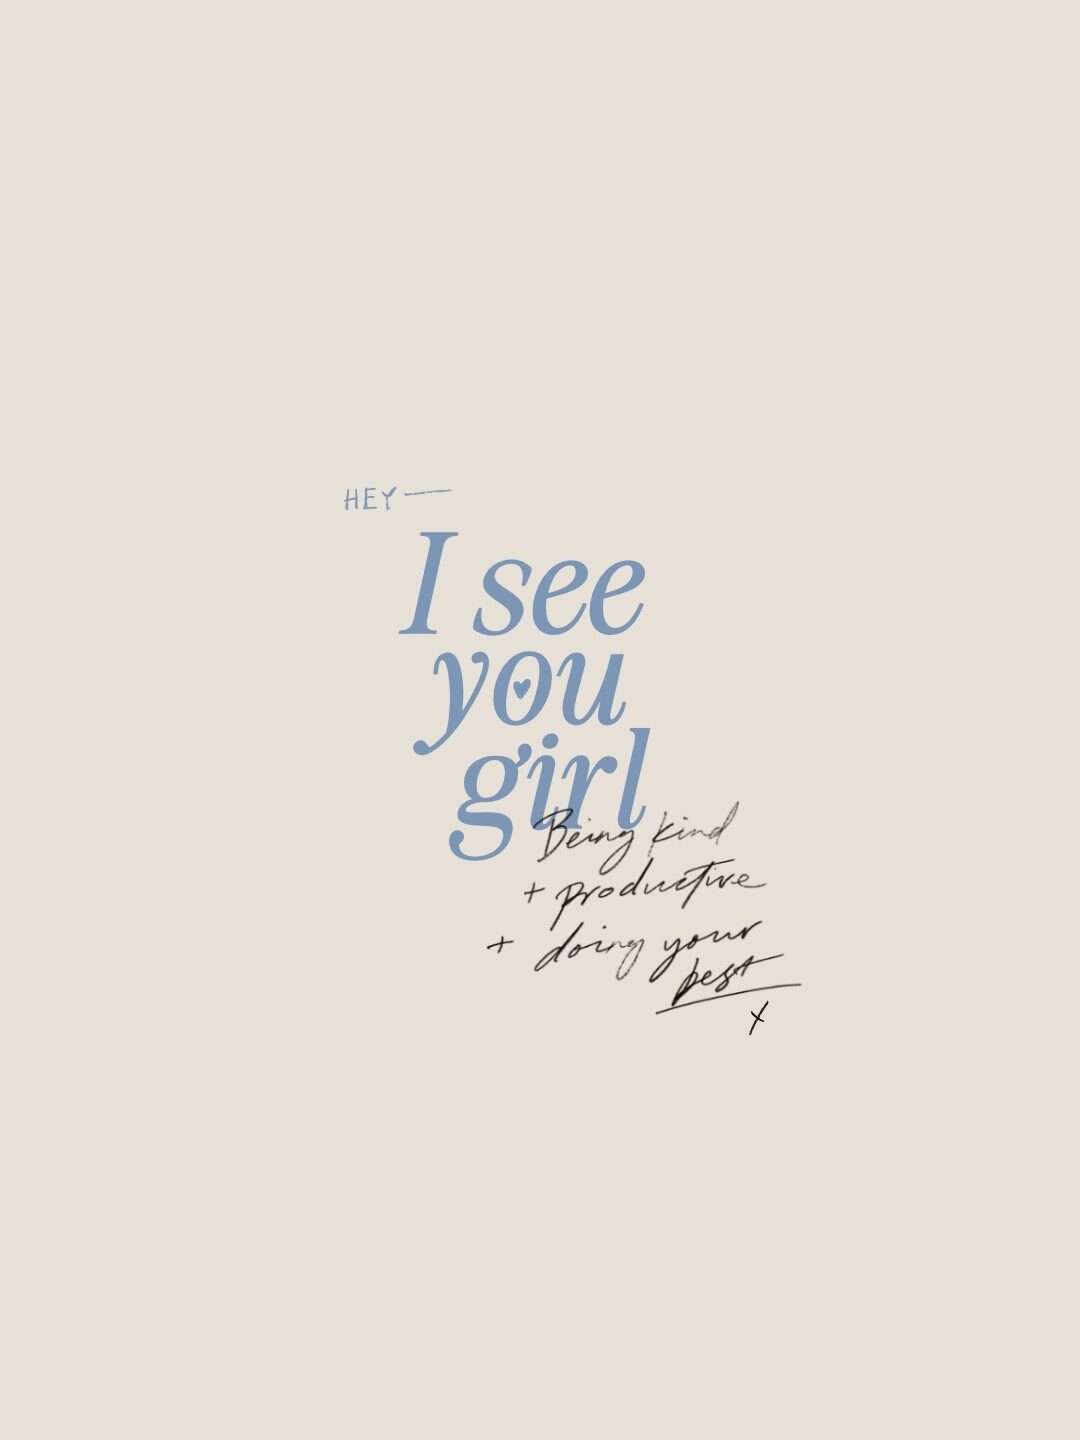 HEY —
I see
you
girl
Being kind
+ productive
+ doing your
best
x